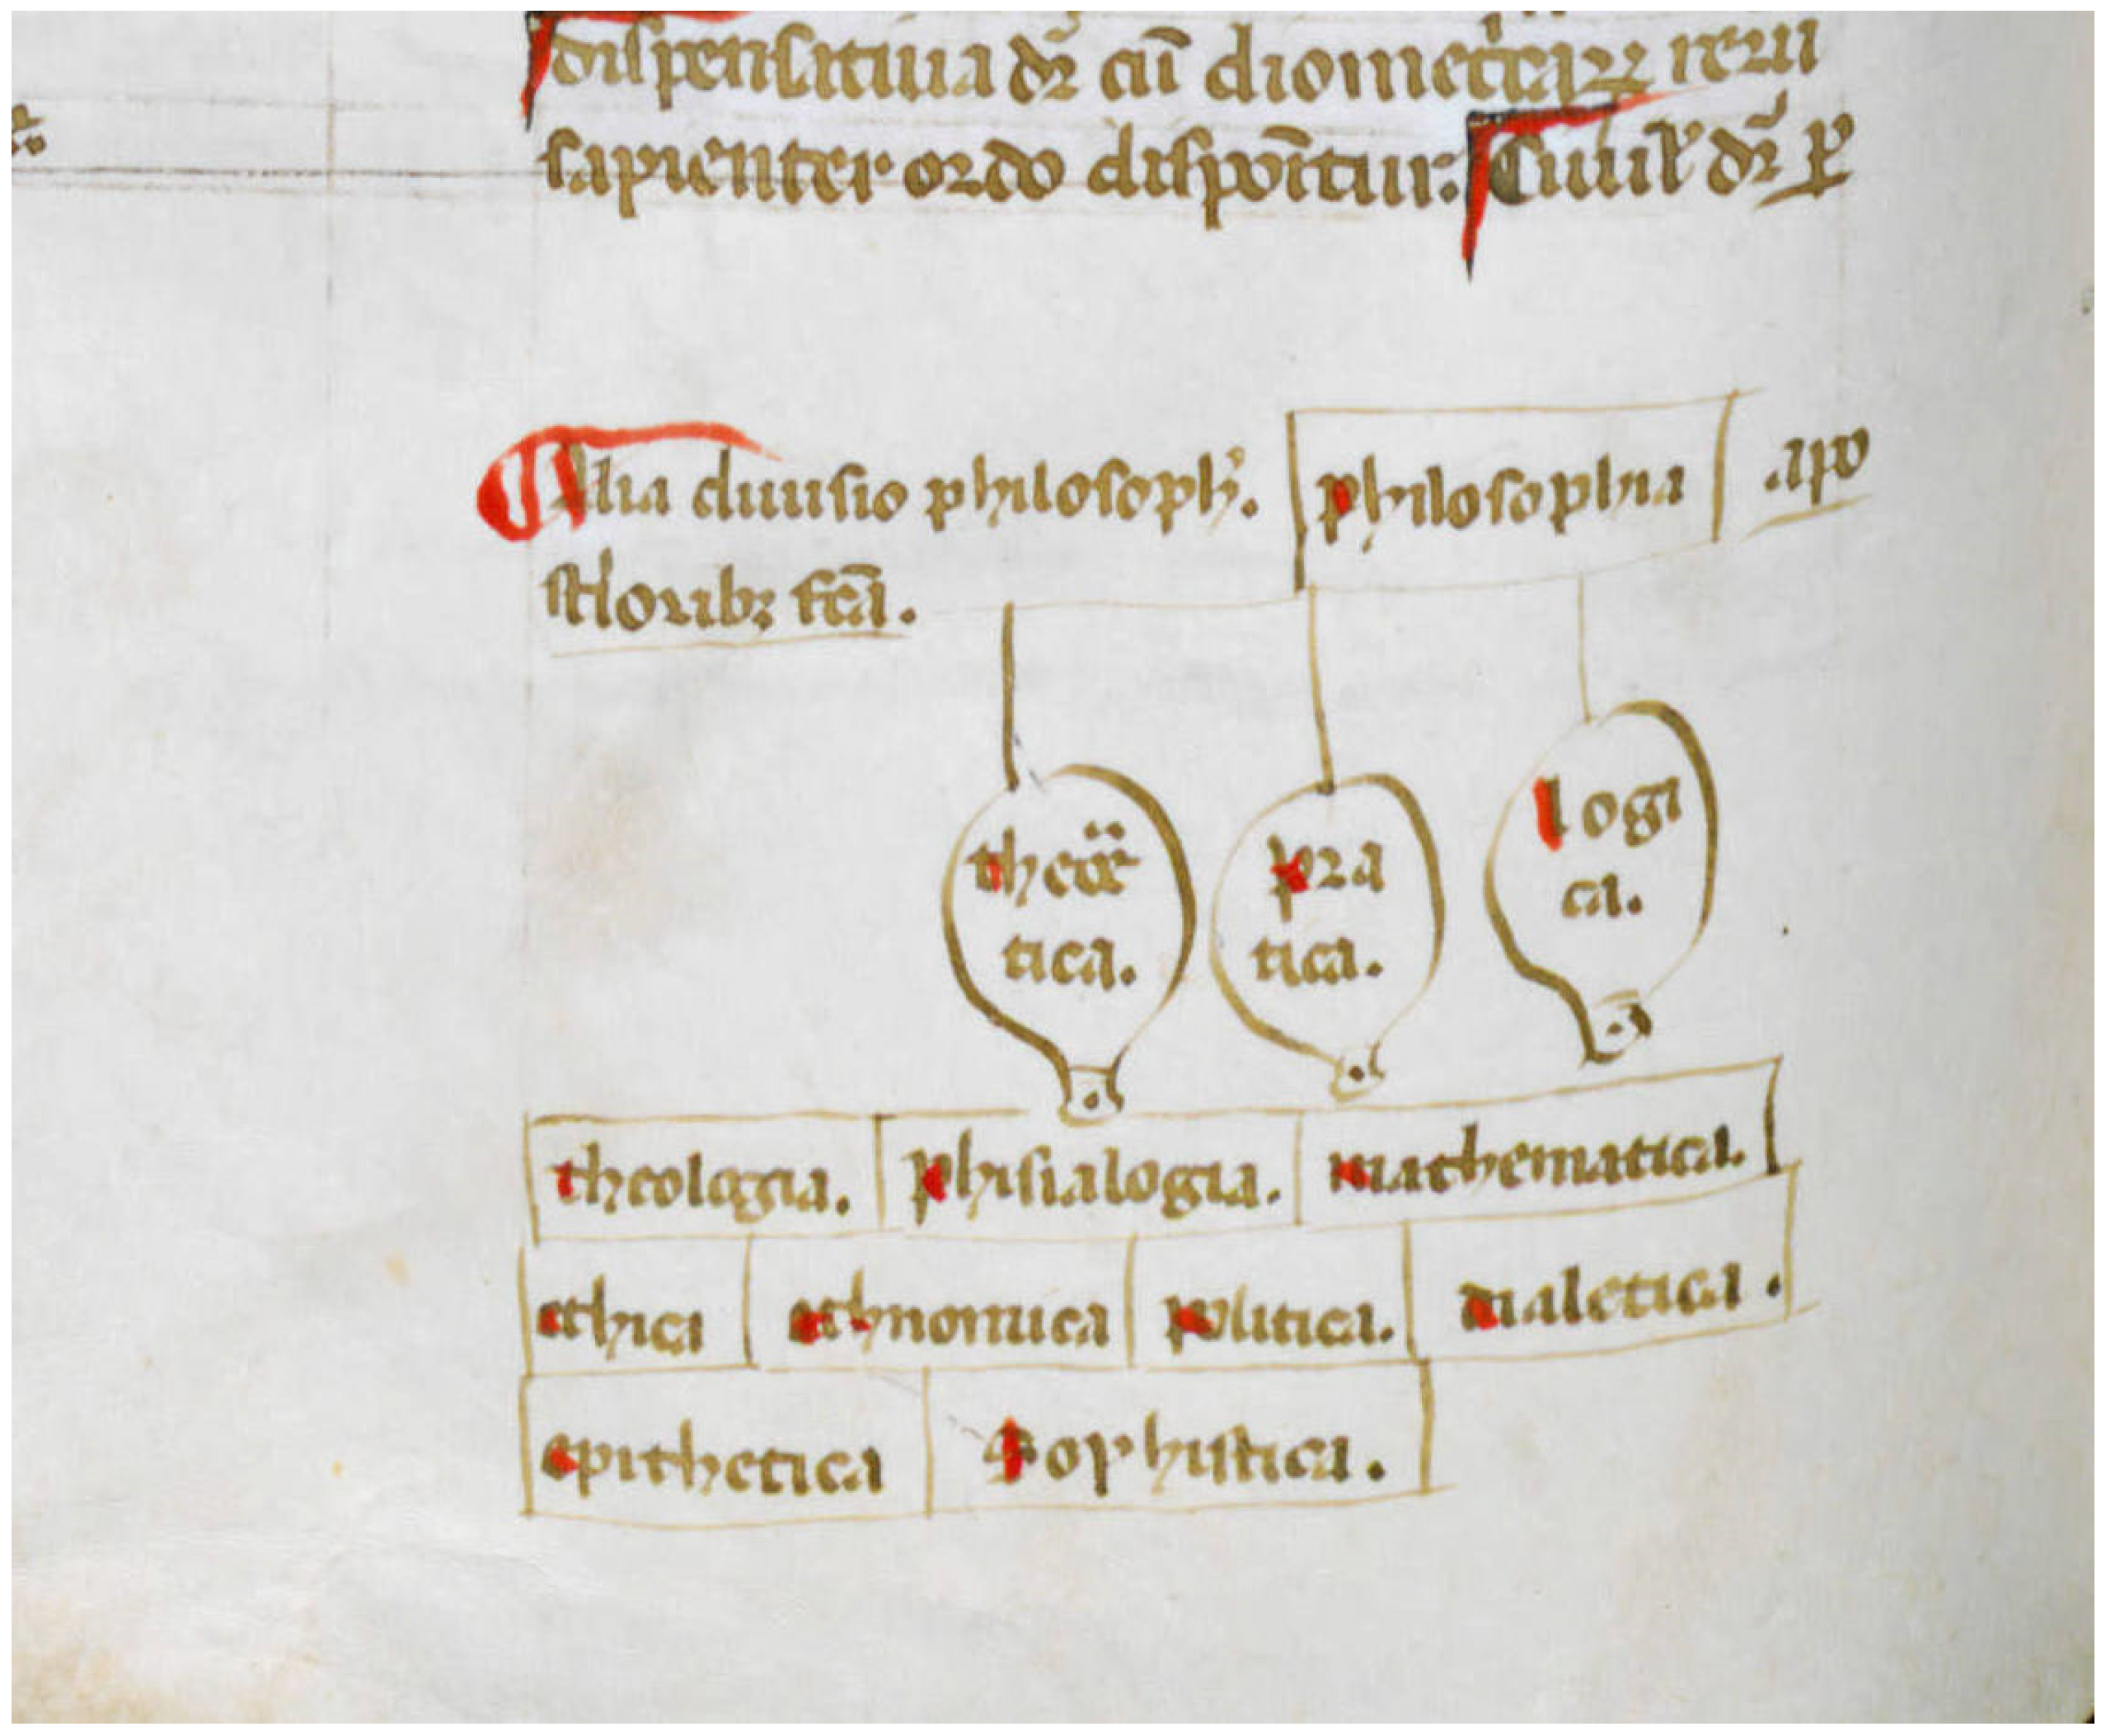 dispensatiua dr̄ cū diometicaꝝ reru
sapienter ordo dispōitur: Ciuilˀ dr̄ ꝑ
Alia diuisio philosoph̾. philosophia apo
storibꝫ fcā.
theor
tica.
pra
tica.
logi
ca.
theologia. phisialogia. mathematica.
ethica ethnomica politica. dialetica.
epithetica Sophistica.